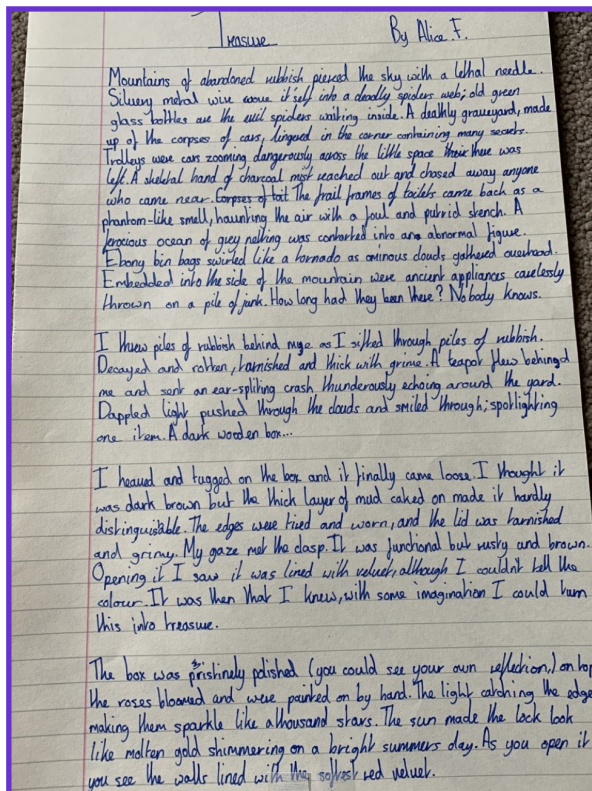 Treasure By Alice F.
Mountains of abandoned rubbish pierced the sky with a lethal needle.
Silvery metal wire wove itself into a deadly spiders web; old green
glass bottles are the evil spiders waiting inside. A deathly graveyard, made
up of the corpses of cars, lingered in the corner containing many secrets.
Trolleys were cars zooming dangerously across the little space there was
left. A skeletal hand of charcoal mist reached out and chased away anyone
who came near. The frail frames of toilets came back as a
phantom-like smell, haunting the air with a foul and putrid stench. A
ferocious ocean of grey netting was contorted into an abnormal figure.
Ebony bin bags swirled like a tornado as ominous clouds gathered overhead.
Embedded into the side of the mountain were ancient appliances carelessly
thrown on a pile of junk. How long had they been there? Nobody knows.
I threw piles of rubbish behind me as I sifted through piles of rubbish.
Decayed and rotten, tarnished and thick with grime. A teapot flew behind
me and sent an ear-spliting crash thunderously echoing around the yard.
Dappled light pushed through the clouds and smiled through; spotlighting
one item. A dark wooden box...
I heaved and tugged on the box and it finally came loose. I thought it
was dark brown but the thick layer of mud caked on made it hardly
distinguisable. The edges were tired and worn, and the lid was tarnished
and grimy. My gaze met the clasp. It was functional but rusty and brown.
Opening it I saw it was lined with velvet, although I couldnt tell the
colour. It was then that I knew, with some imagination I could turn
this into treasure.
The box was pristinely polished (you could see your own reflection,) on top
the roses bloomed and were painted on by hand. The light catching the edge
making them sparkle like a thousand stars. The sun made the lock look
like molten gold shimmering on a bright summers day. As you open it
you see the walls lined with the softest red velvet.